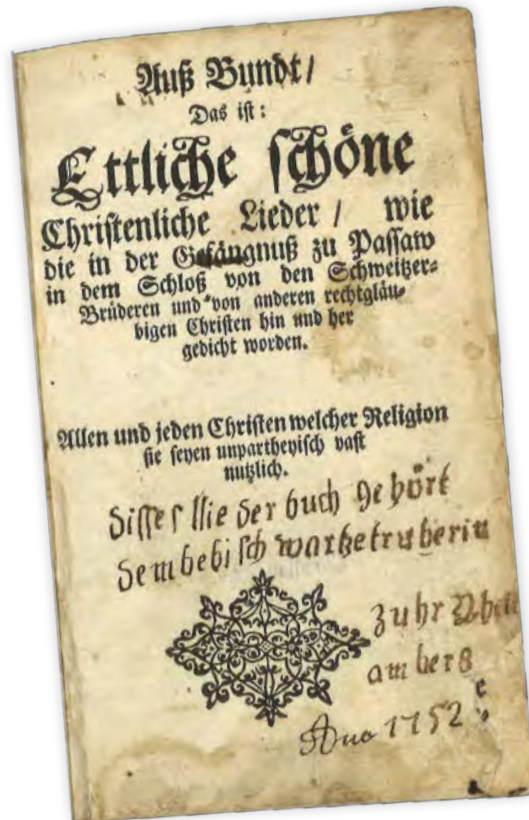 Auß Bundt /
Das ist :
Ettliche schöne
Christenliche Lieder / wie
die in der Gefängnuß zu Passaw
in dem Schloß von den Schweitzer-
Brüderen und von anderen rechtgläu-
bigen Christen hin und her
gedicht worden.
Allen und jeden Christen welcher Religion
sie seyen unpartheyisch vast
nutzlich.
disses llie der buch gehört
am berg
Ano 1752